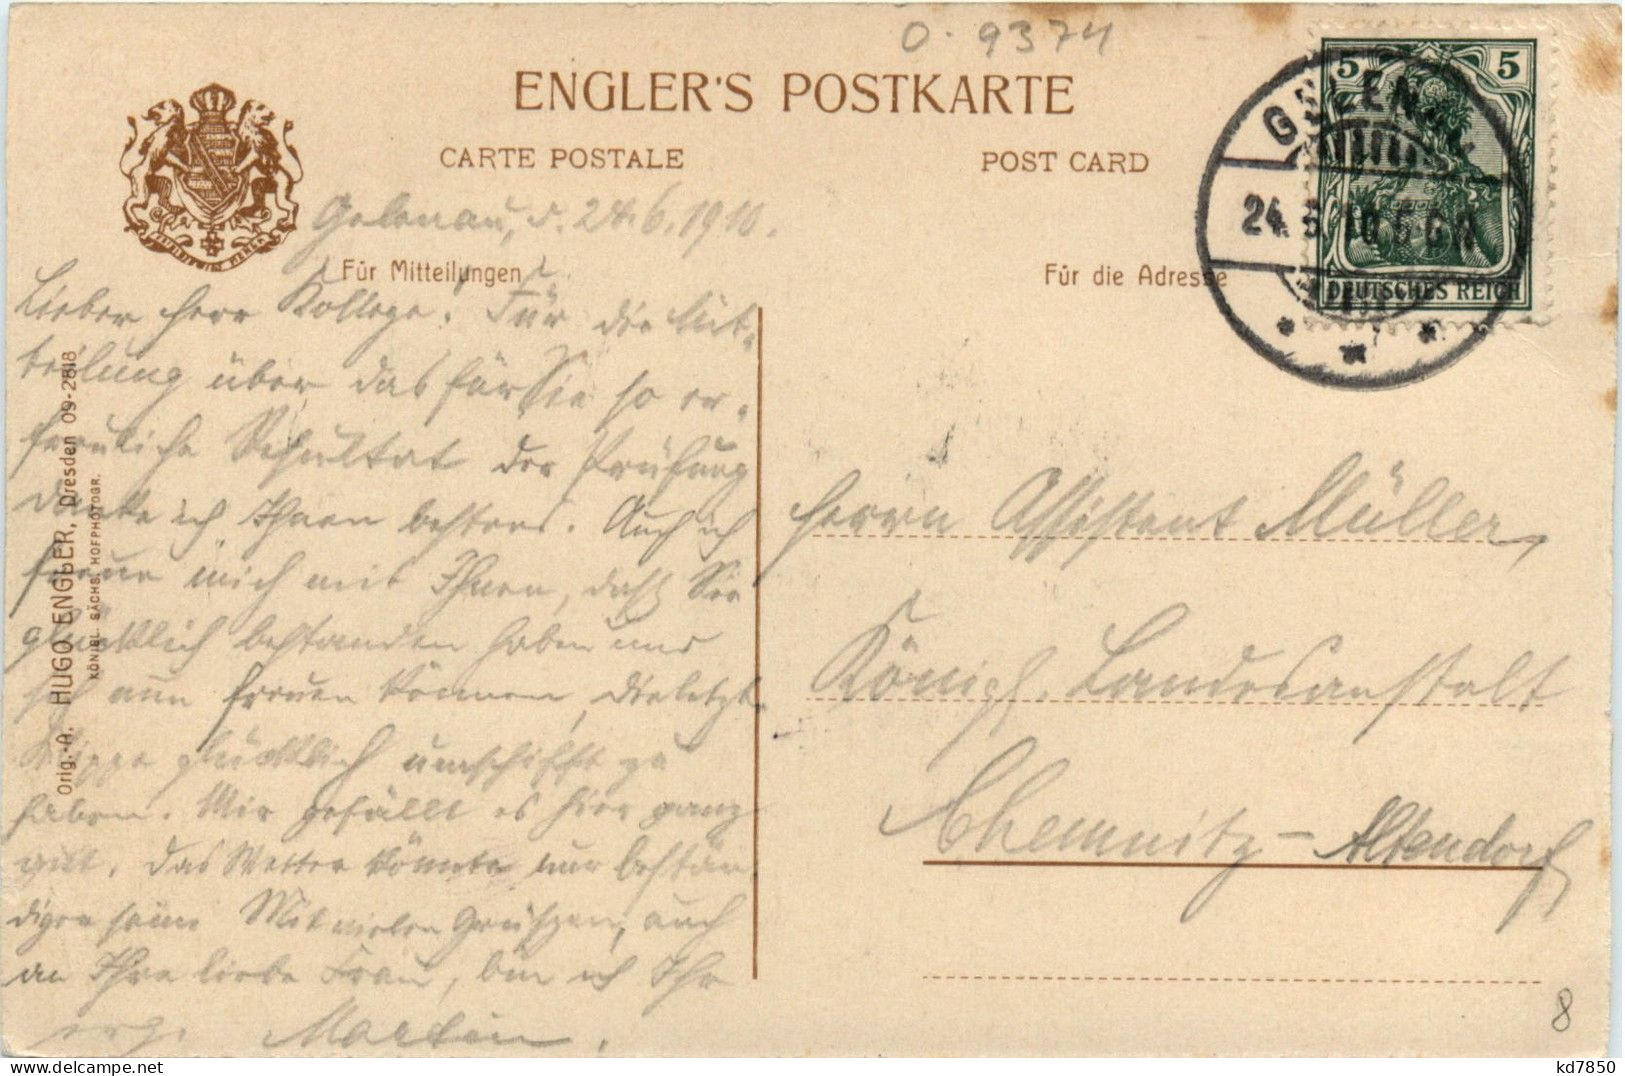 O. 9374
ENGLER'S POSTKARTE
CARTE POSTALE
POST CARD
Gelenau, d. 24.6.1910.
Für Mitteilungen
Lieber Herr Kollege! Für die Mit-
teilung über das für Sie so er-
freuliche Resultat der Prüfung
danke ich Ihnen bestens. Auch ich
freue mich mit Ihnen, daß Sie
glücklich bestanden haben und
sich nun freuen können, die letzte
Klippe glücklich umschifft zu
haben. Mir gefällt es hier ganz
gut. Das Wetter könnte nur bestän-
diger sein. Mit vielen Grüßen, auch
an Ihre liebe Frau, bin ich Ihr
erg. Martin.
Für die Adresse
Herrn Assistent Müller,
Königl. Landesanstalt
Chemnitz-Altendorf
5 5
DEUTSCHES REICH
GELENAU
24. 6. 10. 6-7 N
Orig.-A. HUGO ENGLER, Dresden 09-2818
KÖNIGL. SÄCHS. HOFPHOTOGR.
8
kd7850